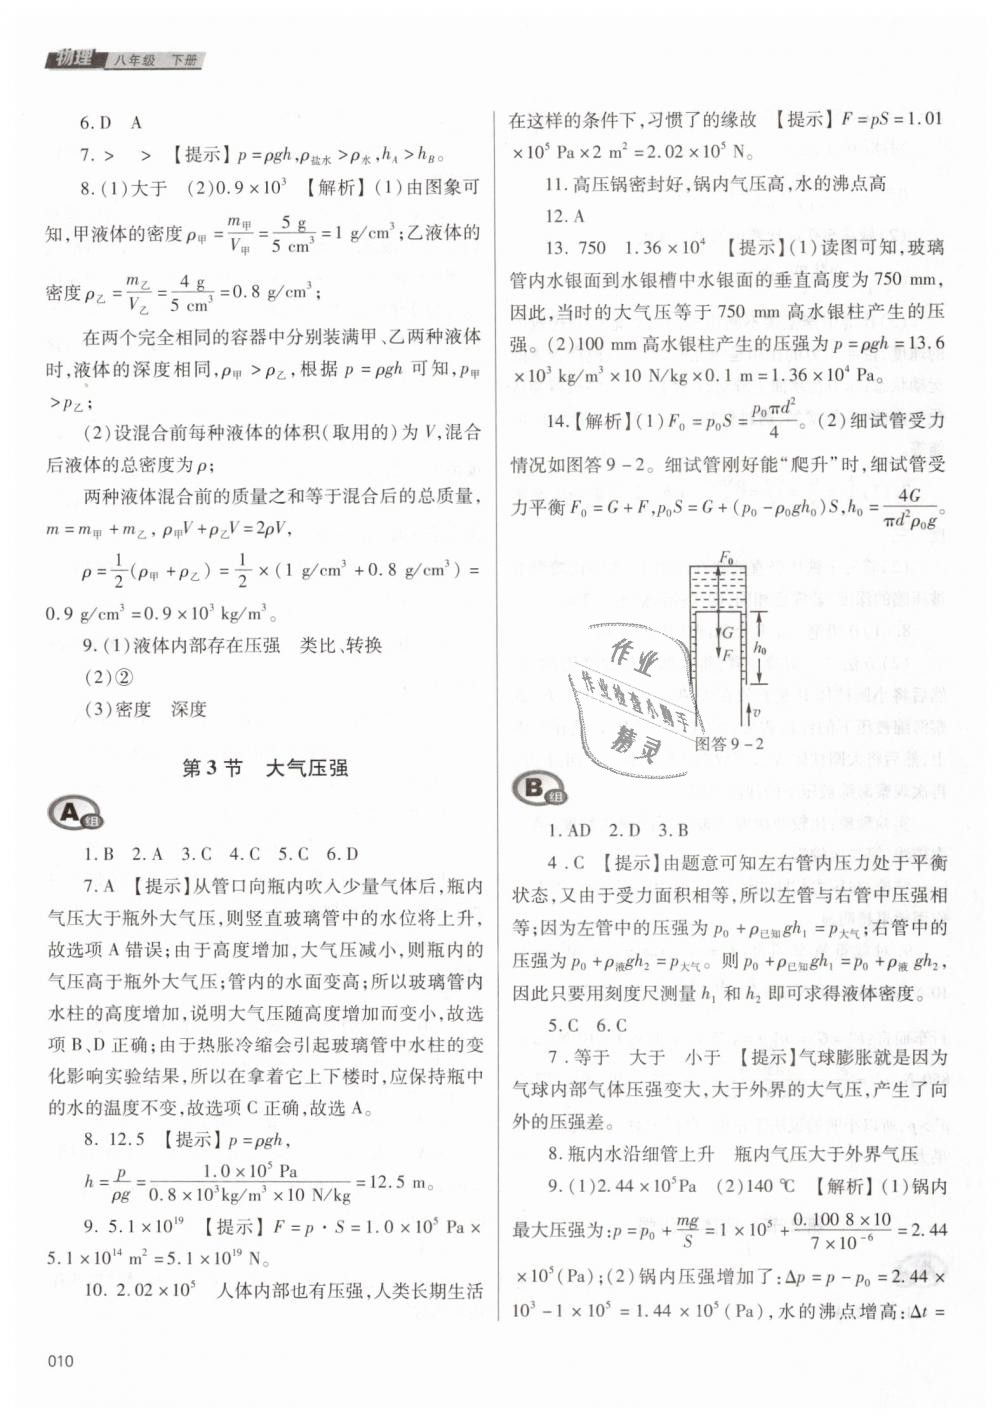 物理 八年级 下册
6.D A
7. > > 【提示】p=ρgh,ρ盐水>ρ水,hA>hB。
8.(1)大于 (2)0.9×10³ 【解析】(1)由图象可
知,甲液体的密度ρ甲=m甲/V甲=5 g/5 cm³=1 g/cm³;乙液体的
密度ρ乙=m乙/V乙=4 g/5 cm³=0.8 g/cm³;
在两个完全相同的容器中分别装满甲、乙两种液体
时,液体的深度相同,ρ甲>ρ乙,根据p=ρgh可知,p甲
>p乙;
(2)设混合前每种液体的体积(取用的)为V,混合
后液体的总密度为ρ;
两种液体混合前的质量之和等于混合后的总质量,
m=m甲+m乙,ρ甲V+ρ乙V=2ρV,
ρ=1/2(ρ甲+ρ乙)=1/2×(1 g/cm³+0.8 g/cm³)=
0.9 g/cm³=0.9×10³ kg/m³。
9.(1)液体内部存在压强 类比、转换
(2)②
(3)密度 深度
第3节 大气压强
A组
1.B 2.A 3.C 4.C 5.C 6.D
7.A 【提示】从管口向瓶内吹入少量气体后,瓶内
气压大于瓶外大气压,则竖直玻璃管中的水位将上升,
故选项A错误;由于高度增加,大气压减小,则瓶内的
气压高于瓶外大气压;管内的水面变高;所以玻璃管内
水柱的高度增加,说明大气压随高度增加而变小,故选
项B、D正确;由于热胀冷缩会引起玻璃管中水柱的变
化影响实验结果,所以在拿着它上下楼时,应保持瓶中
的水的温度不变,故选项C正确,故选A。
8. 12.5 【提示】p=ρgh,
h=p/ρg=1.0×10⁵ Pa/0.8×10³kg/m³×10 N/kg=12.5 m。
9. 5.1×10¹⁹ 【提示】F=p·S=1.0×10⁵ Pa×
5.1×10¹⁴ m²=5.1×10¹⁹ N。
10. 2.02×10⁵ 人体内部也有压强,人类长期生活
010
在这样的条件下,习惯了的缘故 【提示】F=pS=1.01
×10⁵ Pa×2 m²=2.02×10⁵ N。
11.高压锅密封好,锅内气压高,水的沸点高
12.A
13. 750 1.36×10⁴ 【提示】(1)读图可知,玻璃
管内水银面到水银槽中水银面的垂直高度为750 mm,
因此,当时的大气压等于750 mm高水银柱产生的压
强。(2)100 mm高水银柱产生的压强为p=ρgh=13.6
×10³ kg/m³×10 N/kg×0.1 m=1.36×10⁴ Pa。
14.【解析】(1)F₀=p₀S=p₀πd²/4。(2)细试管受力
情况如图答9-2。细试管刚好能“爬升”时,细试管受
力平衡F₀=G+F,p₀S=G+(p₀-ρ₀gh₀)S,h₀=4G/πd²ρ₀g。
F₀
G
F
h₀
v
图答9-2
作业
作业检查小助手
精灵
B组
1.AD 2.D 3.B
4.C 【提示】由题意可知左右管内压力处于平衡
状态,又由于受力面积相等,所以左管与右管中压强相
等;因为左管中的压强为p₀+ρ已知gh₁=p大气;右管中的
压强为p₀+ρ液gh₂=p大气。则p₀+ρ已知gh₁=p₀+ρ液gh₂,
因此只要用刻度尺测量h₁和h₂即可求得液体密度。
5.C 6.C
7.等于 大于 小于 【提示】气球膨胀就是因为
气球内部气体压强变大,大于外界的大气压,产生了向
外的压强差。
8.瓶内水沿细管上升 瓶内气压大于外界气压
9.(1)2.44×10⁵Pa (2)140 ℃ 【解析】(1)锅内
最大压强为:p=p₀+mg/S=1×10⁵+0.100 8×10/7×10⁻⁶=2.44
×10⁵(Pa);(2)锅内压强增加了:Δp=p-p₀=2.44×
10³-1×10⁵=1.44×10⁵(Pa),水的沸点增高:Δt=